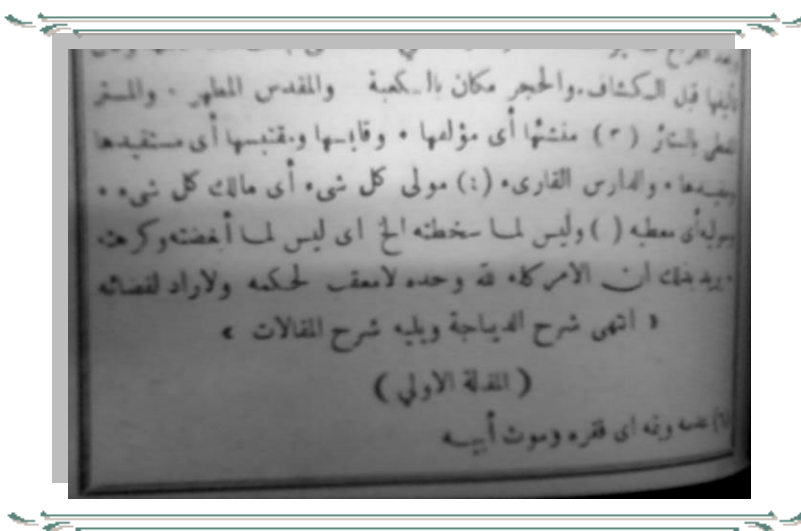 تأليفها قبل الكشاف . والحجر مكان بالكعبة والمقدس المطهر . والمستر
المغطى بالستائر (٣) منشئها أى مؤلفها . وقابسها ومقتبسها أى مستفيدها
ومفيدها . والدارس القارىء (٤) مولى كل شىء أى مالك كل شىء .
وموليه أى معطيه ( ) وليس لما سخطته الخ اى ليس لما أبغضته وكرهته
يريد بذلك ان الامر كله لله وحده لامعقب لحكمه ولاراد لقضائه
« انتهى شرح الديباجة ويليه شرح المقالات »
( المقالة الاولي )
(١) عدمه ويتمه اى فقره وموت أبيه